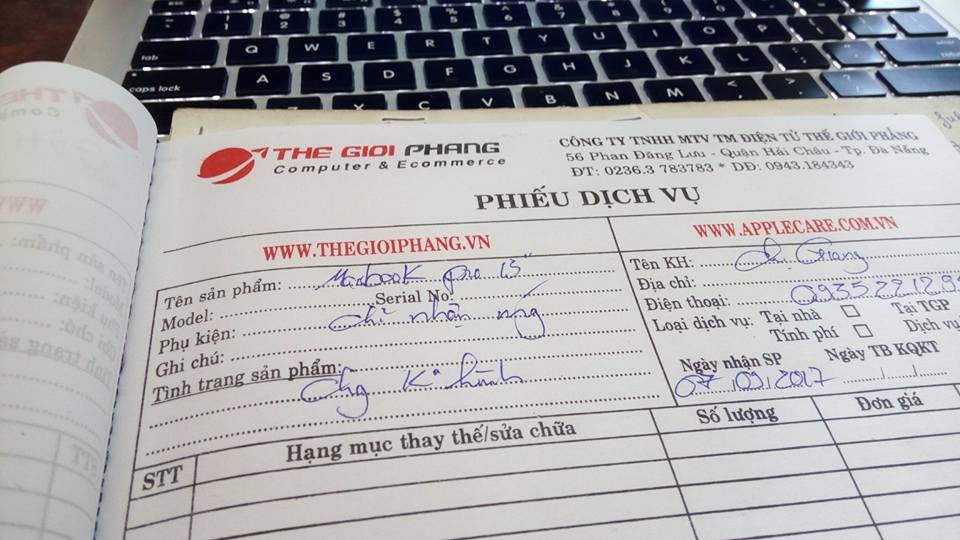 tab Q W E R T Y U I O P
caps lock A S D F G H J K L
Z X C V B N M
THE GIOI PHANG
Computer & Ecommerce
CÔNG TY TNHH MTV TM ĐIỆN TỬ THẾ GIỚI PHẲNG
56 Phan Đăng Lưu - Quận Hải Châu - Tp. Đà Nẵng
ĐT: 0236.3 783783 * DĐ: 0943.184343
PHIẾU DỊCH VỤ
WWW.THEGIOIPHANG.VN
Tên sản phẩm: Macbook pro 13"
Model: Serial No:
Phụ kiện: Chỉ nhận máy
Ghi chú:
Tình trạng sản phẩm:
WWW.APPLECARE.COM.VN
Tên KH:
Địa chỉ:
Điện thoại:
Loại dịch vụ: Tại nhà Tại TGP
Tính phí Dịch vụ
Ngày nhận SP Ngày TB KQKT
07/09/2017
STT Hạng mục thay thế/sửa chữa Số lượng Đơn giá